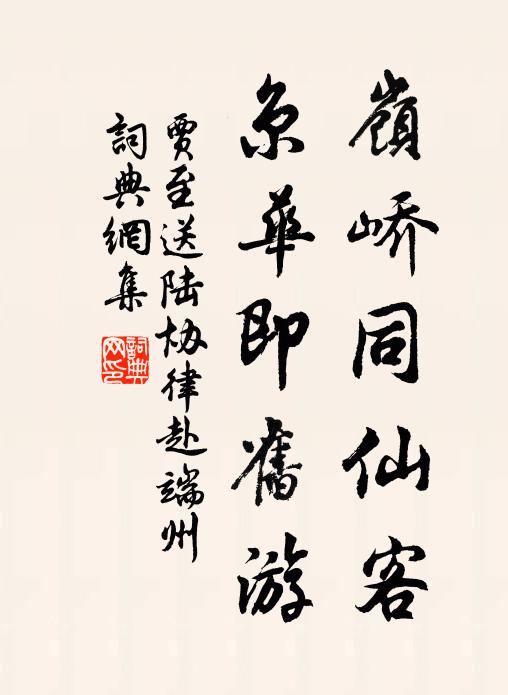 嶺嶠同仙客
京華即舊游
賈至送陆协律赴端州
詞典網集
詞典
网印